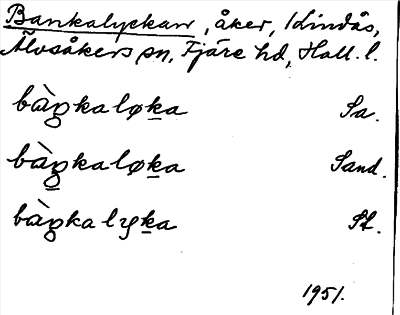 Bankalyckan, åker, Lindås,
Älvsåkers sn, Fjäre hd, Hall. l.
bàŋkaløḵa Sa.
bàŋ̱kaløḵa Sand.
bàŋkalyḵa St.
1951.